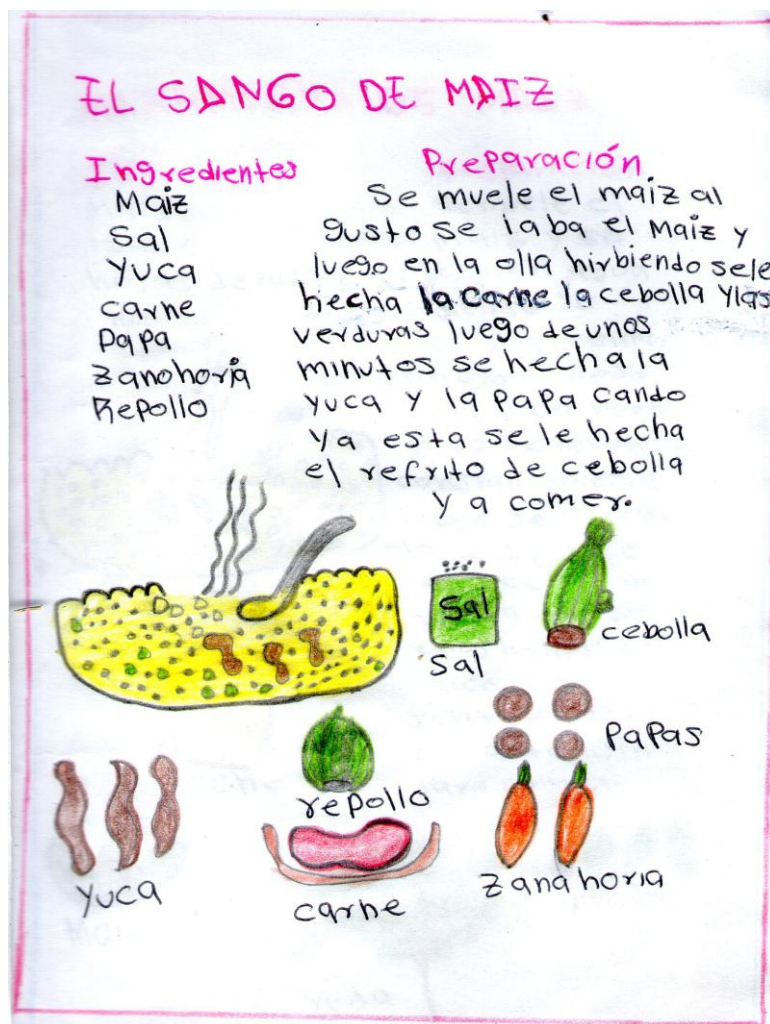 EL SANGO DE MAIZ
Ingredientes
Maiz
Sal
Yuca
carne
Papa
Zanohoria
Repollo
Preparación
Se muele el maiz al
gusto se laba el Maiz y
luego en la olla hirbiendo sele
hecha la carne la cebolla Ylas
verduras luego de unos
minutos se hecha la
yuca y la papa cando
ya esta se le hecha
el refrito de cebolla
Y a comer.
Sal
Sal
cebolla
PaPas
repollo
Yuca
carne
Zanahoria